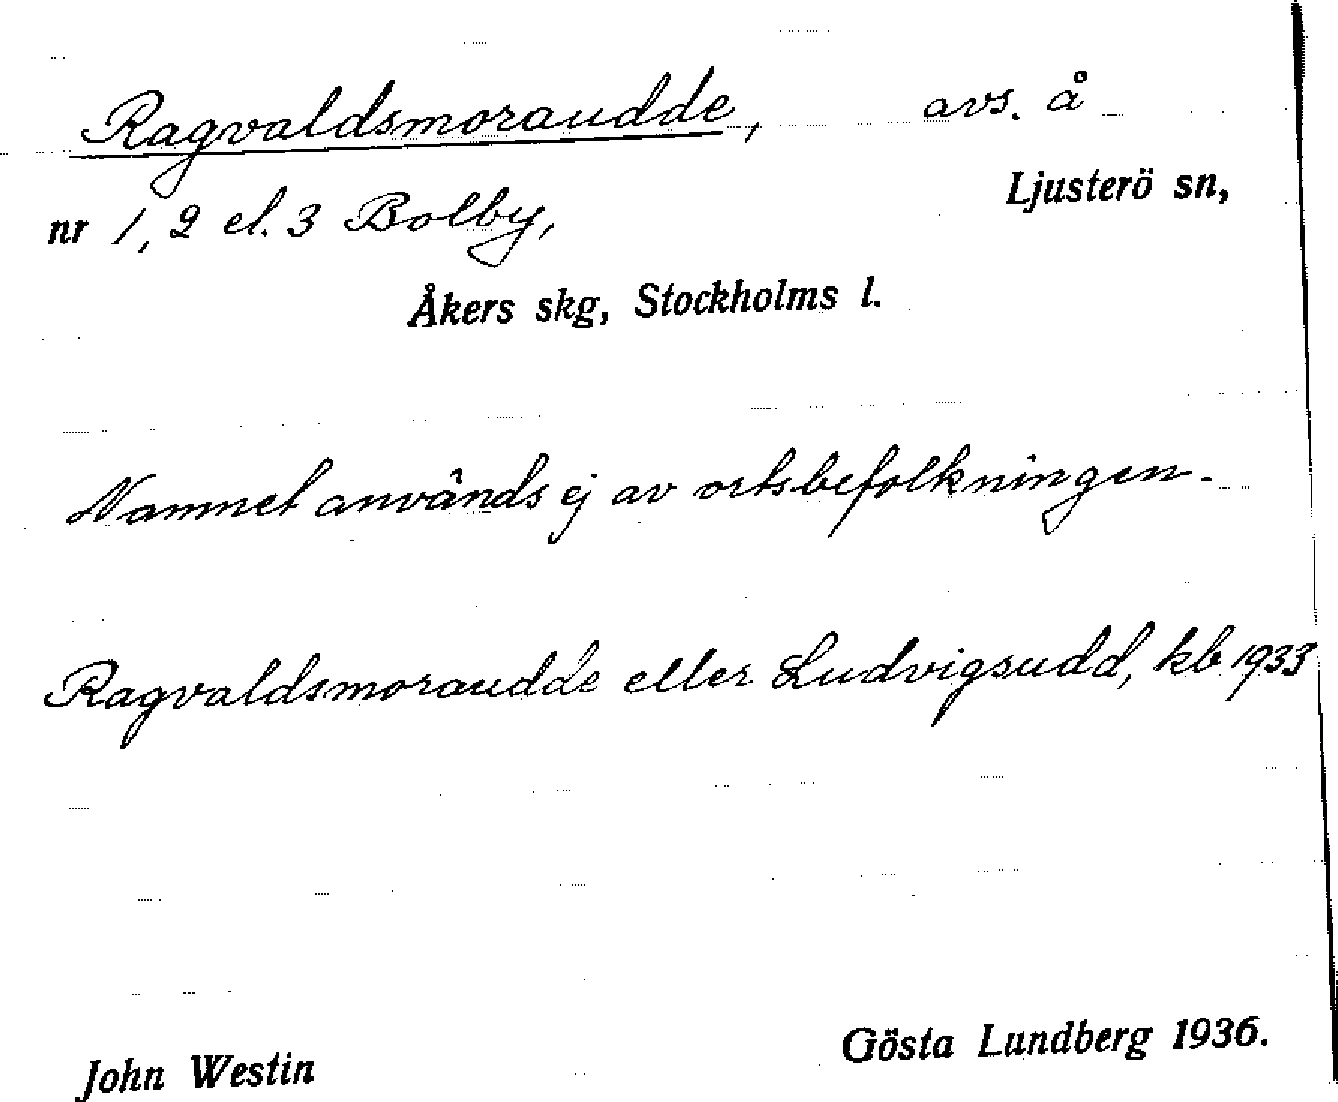 Ragvaldsmoraudde, avs. å
Ljusterö sn,
nr 1, 2 el. 3 Bolby,
Åkers skg, Stockholms l.
Namnet används ej av ortsbefolkningen.
Ragvaldsmoraudde eller Ludvigsudd, kb 1933
John Westin
Gösta Lundberg 1936.